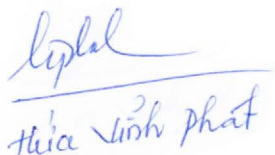 Hứa Vĩnh Phát